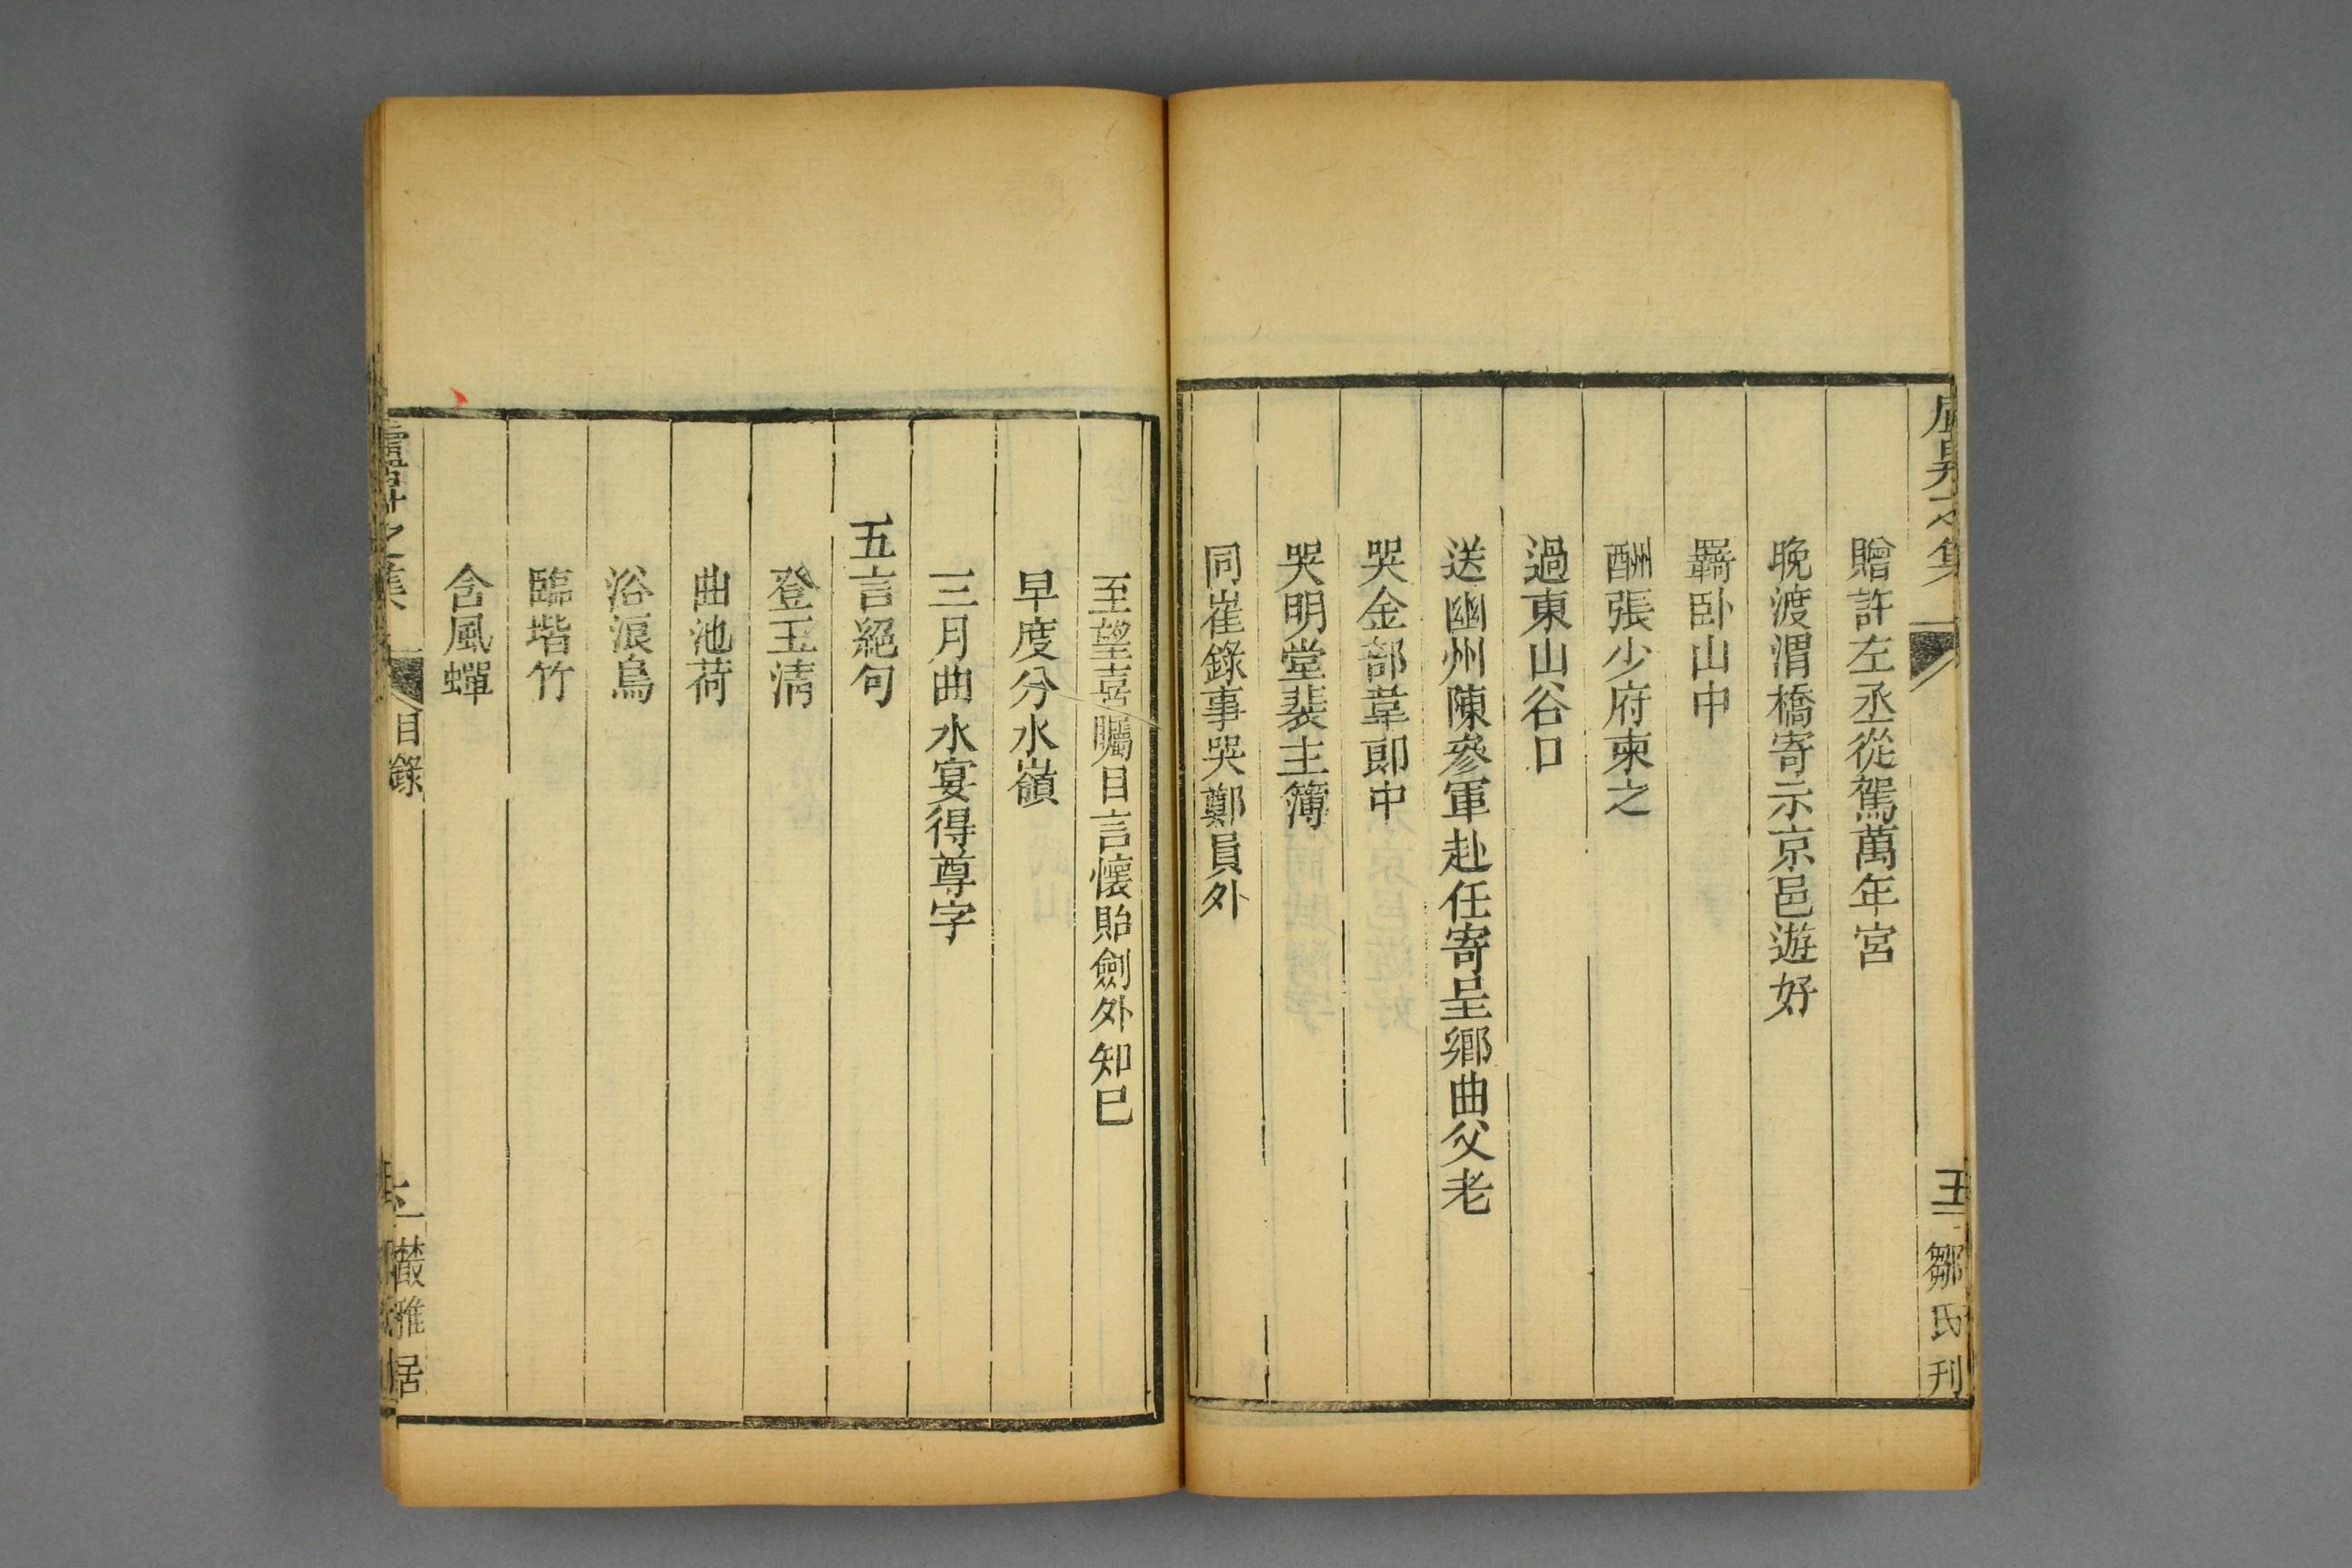 贈許左丞從駕萬年宮
晚渡渭橋寄示京邑遊好
羇卧山中
酬張少府柬之
過東山谷口
送幽州陳參軍赴任寄呈鄉曲父老
哭金部韋郎中
哭明堂裴主簿
同崔錄事哭鄭員外
五 鄒氏刊
至望喜矚目言懷貽劍外知已
早度分水嶺
三月曲水宴得尊字
五言絕句
登玉清
曲池荷
浴浪鳥
臨堦竹
含風蟬
目錄
叢雅居